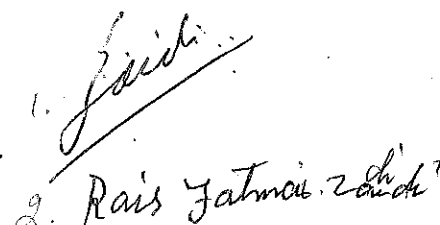 1. Zaidi
2. Rais Fatma Zaidi